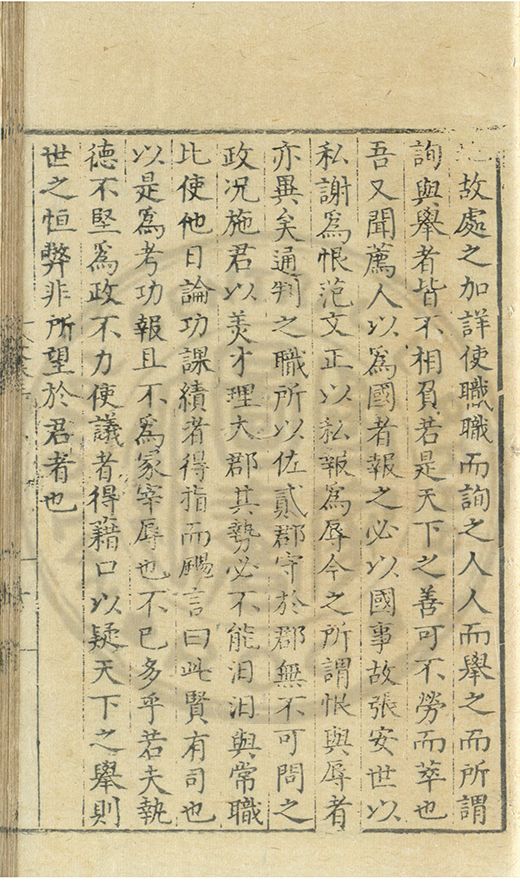 故處之加詳使職職而詢之人人而舉之而所謂
詢與舉者皆不相負若是天下之善可不勞而萃也
吾又聞薦人以為國者報之必以國事故張安世以
私謝為恨范文正以私報為辱今之所謂恨與辱者
亦異矣通判之職所以佐貳郡守於郡無不可問之
政况施君以美才理大郡其勢必不能汨汨與常職
比使他日論功課績者得指而颺言曰此賢有司也
以是為考功報且不為冢宰辱也不已多乎若夫執
德不堅為政不力使議者得藉口以疑天下之舉則
世之恒弊非所望於君者也